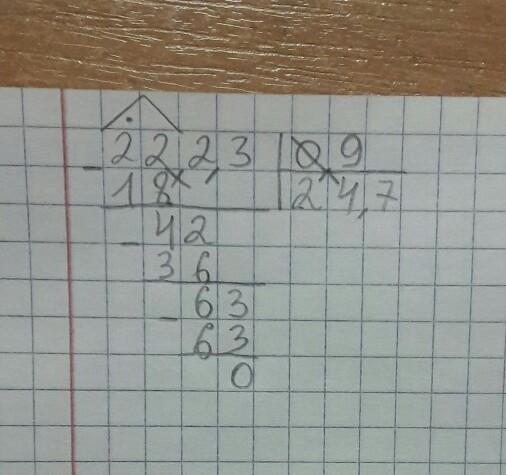 222,3 | 0 9
- 18 | 24,7
- 42
36
- 63
63
0